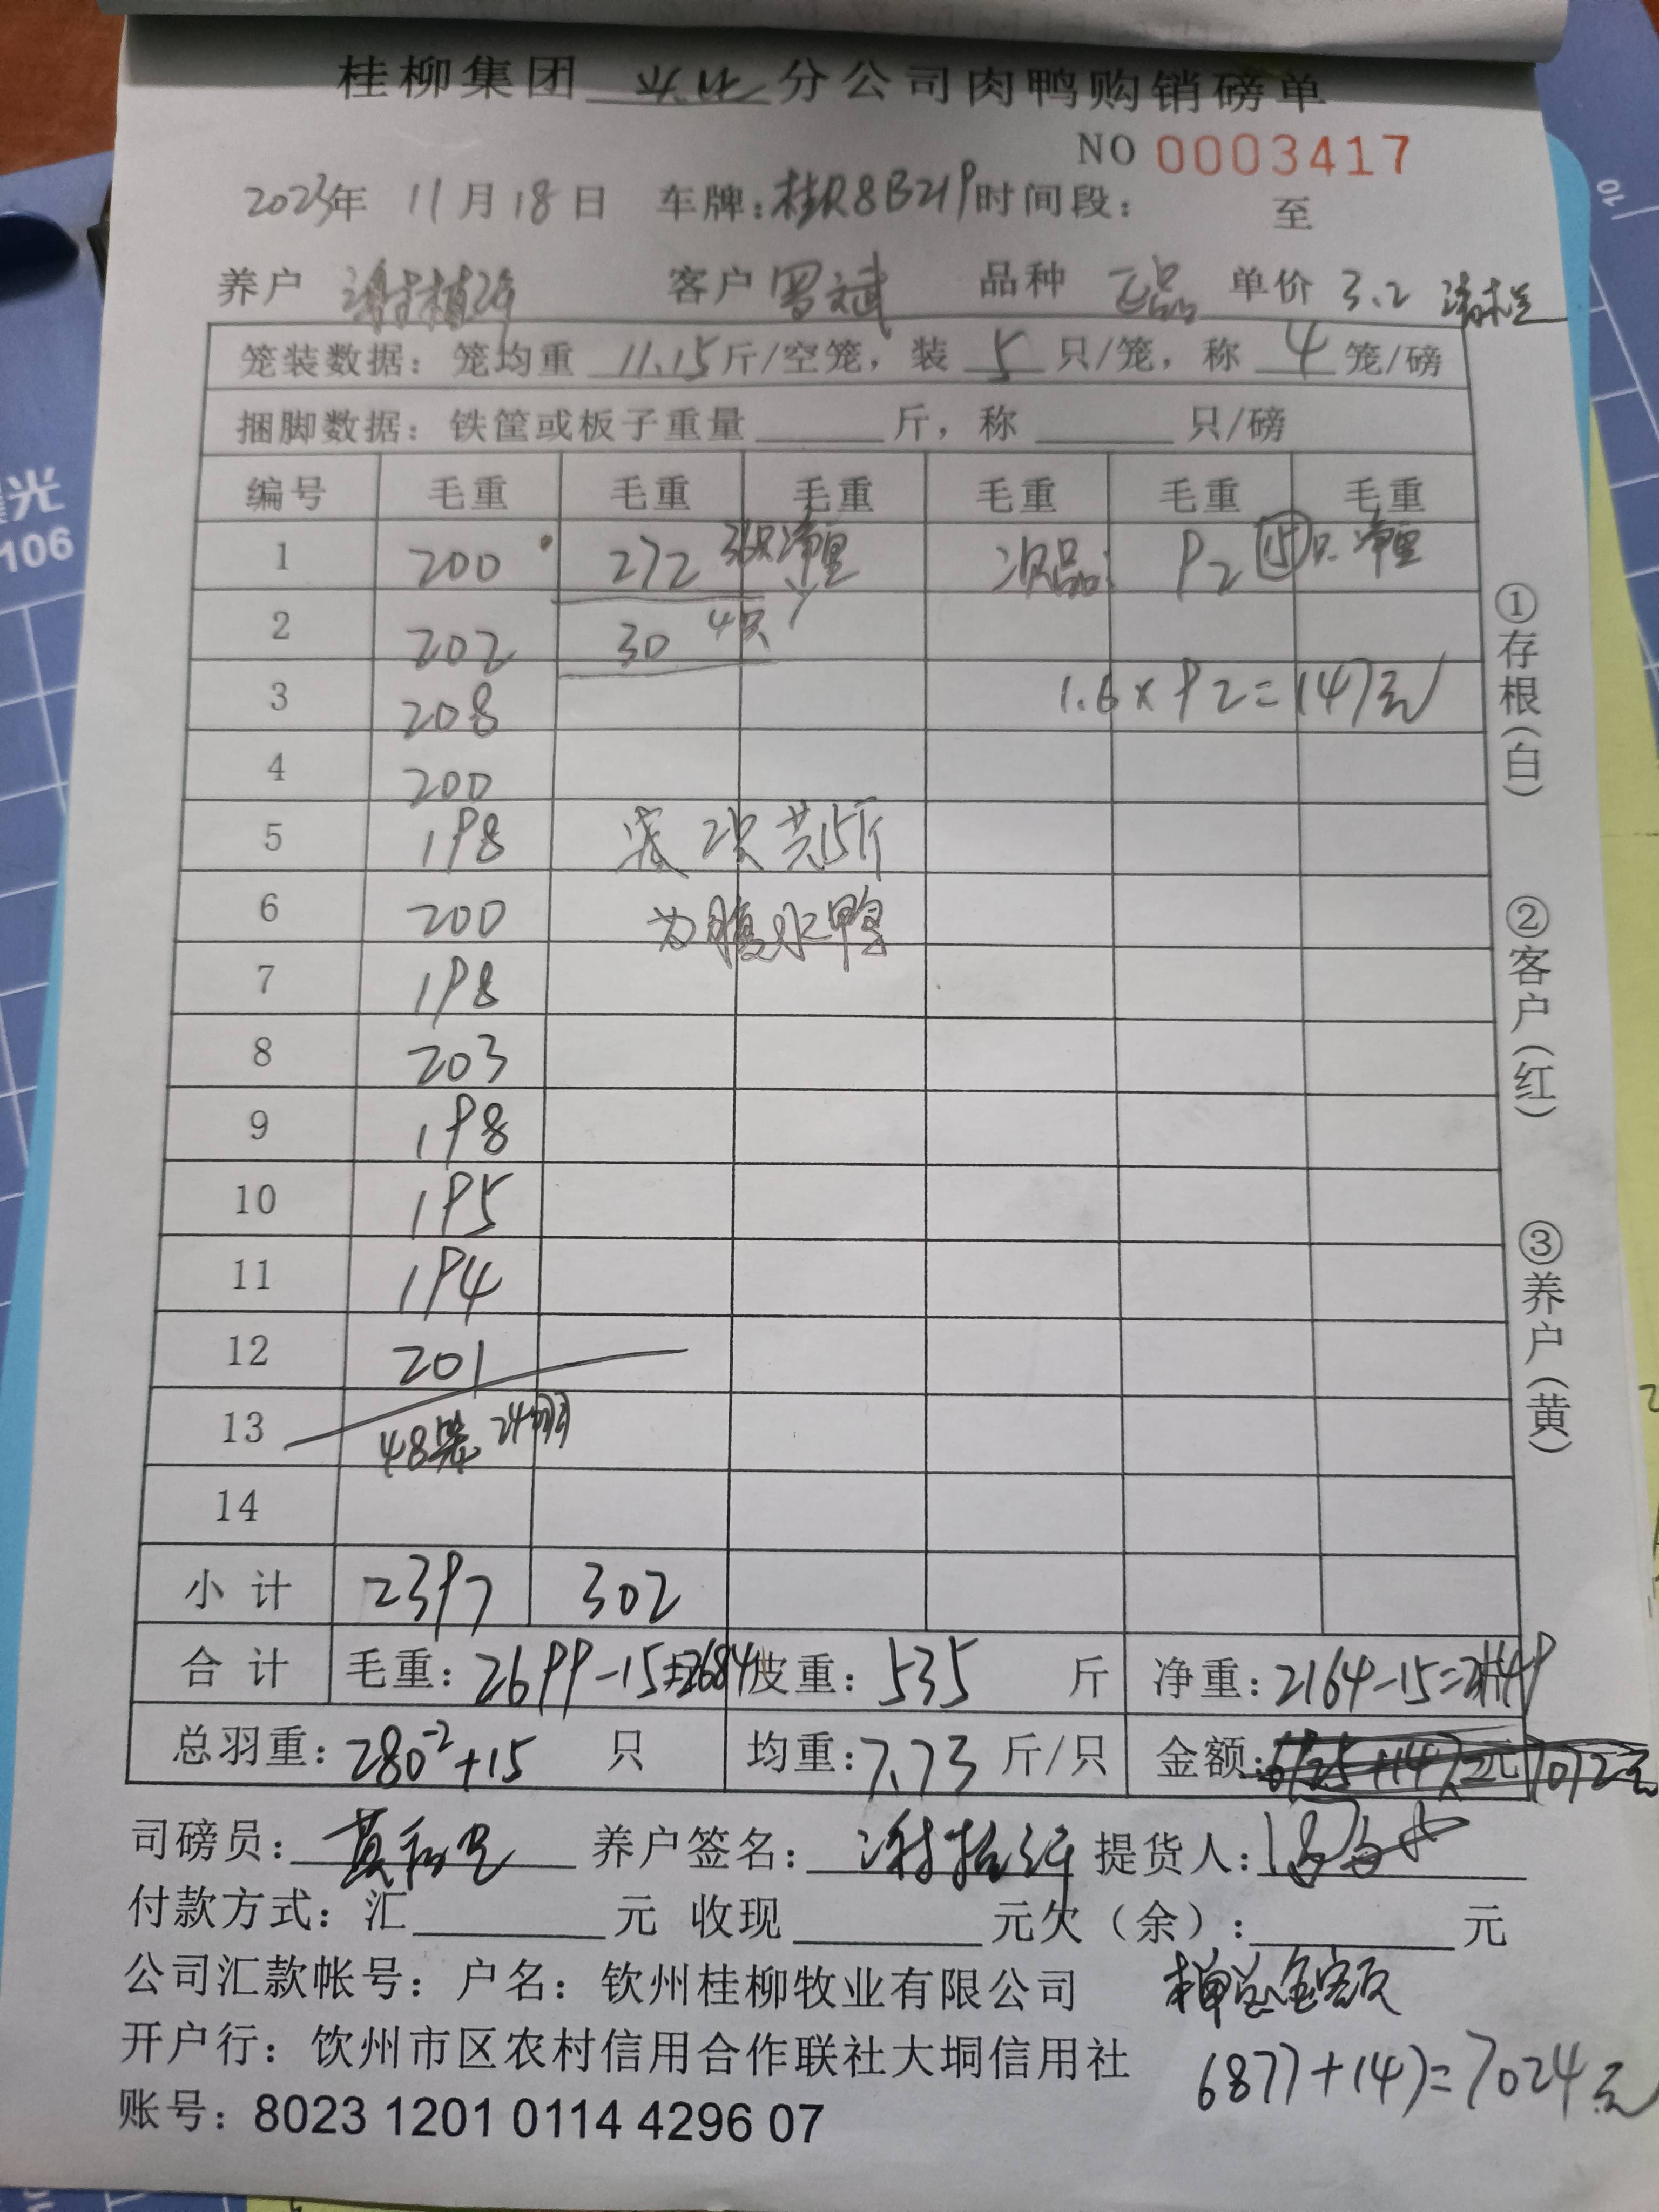 桂柳集团 分公司肉鸭购销磅单
NO 0003417
2023年 11月18日 车牌:桂R8B219 时间段: 至
养户 谢 客户 罗斌 品种 正品 单价 3.2 清栏
笼装数据: 笼均重 11.15 斤/空笼, 装 5 只/笼, 称 4 笼/磅
捆脚数据: 铁筐或板子重量 斤, 称 只/磅
编号 毛重 毛重 毛重 毛重 毛重 毛重
1 200 272 36只净重 次品: 92 15只 净重
2 202 30 4只
3 208 1.6×92=147元
4 200
5 198 共15斤
6 200 为腹水鸭
7 198
8 203
9 198
10 195
11 194
12 201
13 48笼 24
14
小计 2397 302
合计 毛重: 2699-15=2684 皮重: 535 斤 净重: 2164-15=2149
总羽重: 280-2+15 只 均重: 7.73 斤/只 金额: 7072元
司磅员: 养户签名: 谢 提货人:
付款方式: 汇 元 收现 元欠(余): 元
公司汇款帐号: 户名: 钦州桂柳牧业有限公司
本单总金额
开户行: 钦州市区农村信用合作联社大垌信用社
6877+147=7024元
账号: 8023 1201 0114 4296 07
①存根(白)
②客户(红)
③养户(黄)
光
106
10